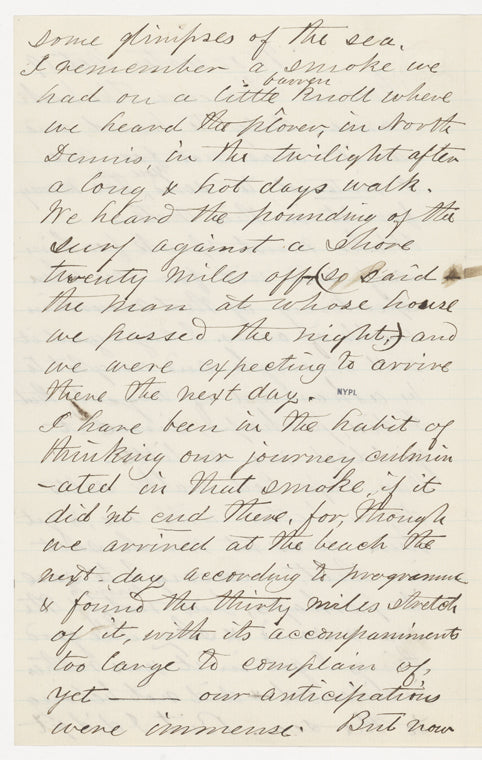 some glimpses of the sea.
I remember a smoke we
had on a little barren knoll where
we heard the plover, in North
Dennis, in the twilight after
a long & hot days walk.
We heard the pounding of the
surf against a shore
twenty miles off (so said
the man at whose house
we passed the night,) and
we were expecting to arrive
there the next day.
NYPL
I have been in the habit of
thinking our journey culmin
-ated in that smoke, if it
did'nt end there, for, though
we arrived at the beach the
next day according to programme
& found the thirty miles stretch
of it, with its accompaniments
too large to complain of,
yet —— our anticipations
were immense. But now